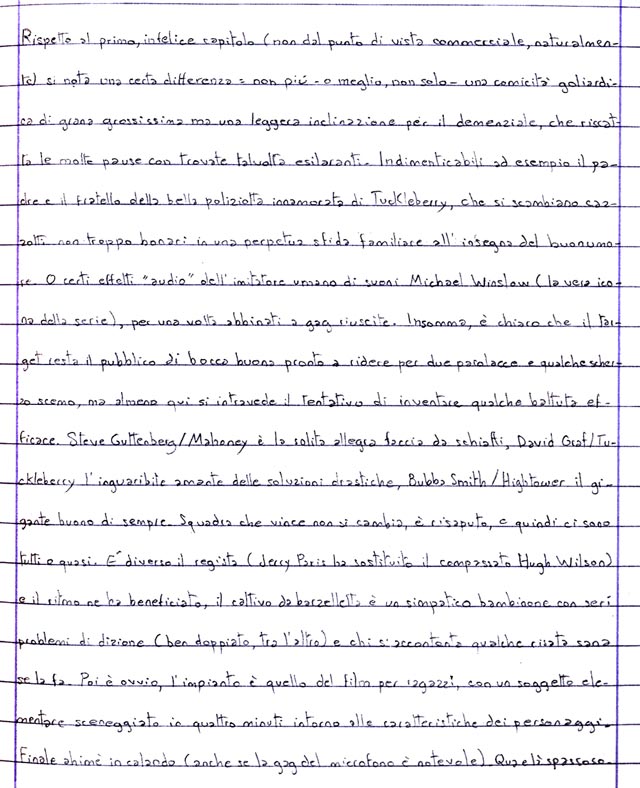 Rispetto al primo, infelice capitolo (non dal punto di vista commerciale, naturalmen-
te) si nota una certa differenza: non più - o meglio, non solo - una comicità goliardi-
ca di grana grossissima ma una leggera inclinazione per il demenziale, che riscat-
ta le molte pause con trovate talvolta esilaranti. Indimenticabili ad esempio il pa-
dre e il fratello della bella poliziotta innamorata di Tuckleberry, che si scambiano caz-
zotti non troppo bonari in una perpetua sfida familiare all'insegna del buonumo-
re. O certi effetti "audio" dell'imitatore umano di suoni Michael Winslow (la vera ico-
na della serie), per una volta abbinati a gag riuscite. Insomma, è chiaro che il tar-
get resta il pubblico di bocca buona pronto a ridere per due parolacce e qualche scher-
zo scemo, ma almeno qui si intravede il tentativo di inventare qualche battuta ef-
ficace. Steve Guttenberg/Mahoney è la solita allegra faccia da schiaffi, David Graf/Tu-
ckleberry l'inguaribile amante delle soluzioni drastiche, Bubba Smith/Hightower il gi-
gante buono di sempre. Squadra che vince non si cambia, è risaputo, e quindi ci sono
tutti o quasi. E' diverso il regista (Jerry Paris ha sostituito il compassato Hugh Wilson)
e il ritmo ne ha beneficiato, il cattivo da barzelletta è un simpatico bambinone con seri
problemi di dizione (ben doppiato, tra l'altro) e chi s'accontenta qualche risata sana
se la fa. Poi è ovvio, l'impianto è quello del film per ragazzi, con un soggetto ele-
mentare sceneggiato in quattro minuti intorno alle caratteristiche dei personaggi.
Finale ahimè in calando (anche se la gag del microfono è notevole) Qua e là spassoso.